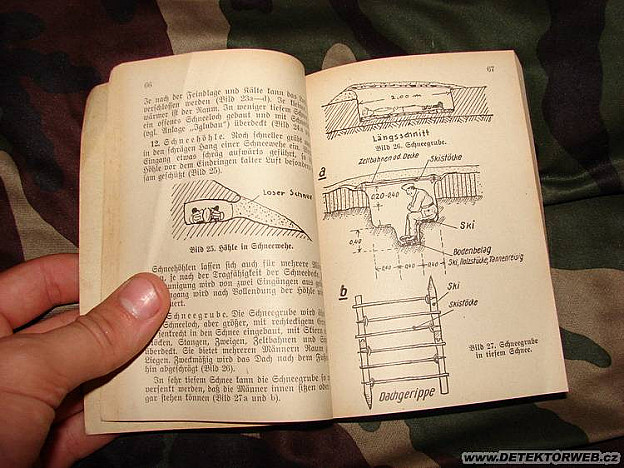 66
Je nach der Feindlage und Kälte kann das
verschlossen werden (Bild 23a—d). Je tiefer
wärmer ist der Raum. In tiefem
ein offenes Schneeloch gebaut und mit
(vgl. Anlage „Iglubau") überdeckt (Bild 24a
12. Schneehöhle. Noch schneller gräbt
den schrägen Hang einer Schneewehe ein.
Eingang etwas schräg aufwärts geführt, so
Höhle vor dem Eindringen kalter Luft besonders
sam geschützt (Bild 25).
Loser Schnee
Bild 25. Höhle in Schneewehe.
Schneehöhlen lassen sich auch für mehrere
je nach der Tragfähigkeit der Schneedecke
wird von zwei Eingängen aus
wird nach Vollendung der Höhle
Schneegrube. Die Schneegrube wird
Schneeloch, aber größer, mit rechteckigem
senkrecht in den Schnee eingebaut, mit Skiern,
Stöcken, Stangen, Zweigen, Zeltbahnen und
überdeckt. Sie bietet mehreren Männern Raum
Liegen. Zweckmäßig wird das Dach nach dem
hin abgeschrägt (Bild 26).
In sehr tiefem Schnee kann die Schneegrube so
versenkt werden, daß die Männer innen sitzen oder
gar stehen können (Bild 27a und b).
67
2.00 m
Längsschnitt
Bild 26. Schneegrube.
a
Zeltbahnen od. Decke
Skistöcke
0,20-0,40
Ski
0,40
Bodenbelag
0,40 0,40 0,40
Ski, Holzstücke, Tannenreisig
b
Ski
Skistöcke
Bild 27. Schneegrube
in tiefem Schnee.
Dachgerippe
www.DETEKTORWEB.cz